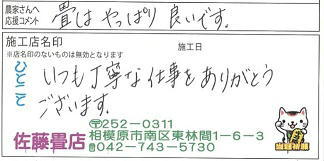 農家さんへ
応援コメント
畳はやっぱり良いです。
施工店名印
※店名印のないものは無効となります
施工日
ひとこと
いつも丁寧な仕事をありがとう
ございます。
佐藤畳店
〒252-0311
相模原市南区東林間1-6-3
☎042-743-5730